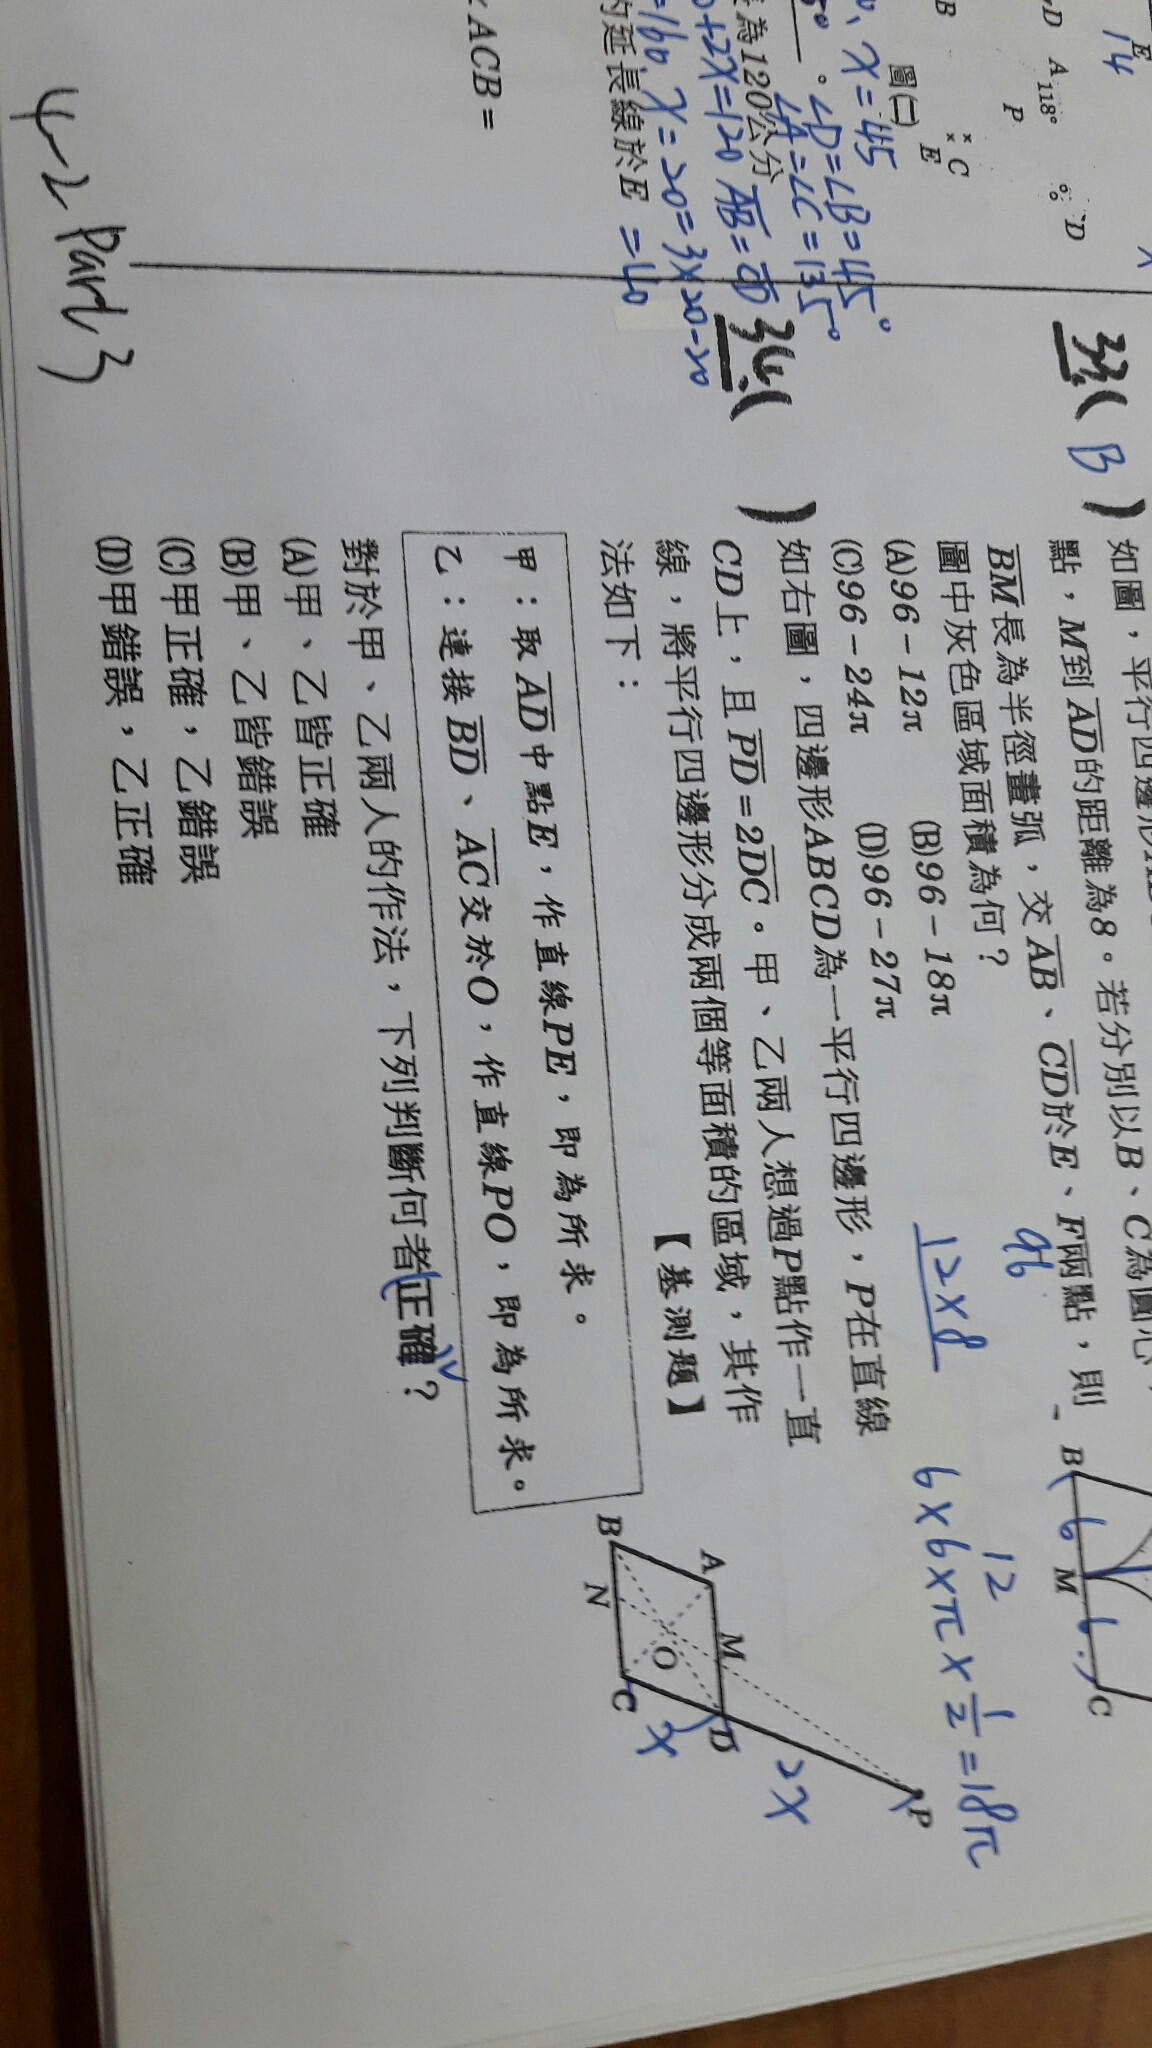 E
14
D A 118°
P
× C
×
E
D
B
圖(二)
x=45
∠D=∠B=45°
∠A=∠C=135°
為120公分
+2x=120 AB=CD
=160, x=20=3×20-20
的延長線於E =40
ACB=
4-2 Part 3
33.( B ) 如圖,平行四邊形
點,M到AD的距離為8。若分別以B、C為圓心,
BM長為半徑畫弧,交AB、CD於E、F兩點,則
圖中灰色區域面積為何?
(A)96-12π (B)96-18π
(C)96-24π (D)96-27π
96
12×8
12
6×6×π×1/2=18π
B 6 M 6 C
34.( ) 如右圖,四邊形ABCD為一平行四邊形,P在直線
CD上,且PD=2DC。甲、乙兩人想過P點作一直
線,將平行四邊形分成兩個等面積的區域,其作
法如下: 【基測題】
甲:取AD中點E,作直線PE,即為所求。
乙:連接BD、AC交於O,作直線PO,即為所求。
對於甲、乙兩人的作法,下列判斷何者正確?
(A)甲、乙皆正確
(B)甲、乙皆錯誤
(C)甲正確,乙錯誤
(D)甲錯誤,乙正確
P
2x
A M D
O x
B N C